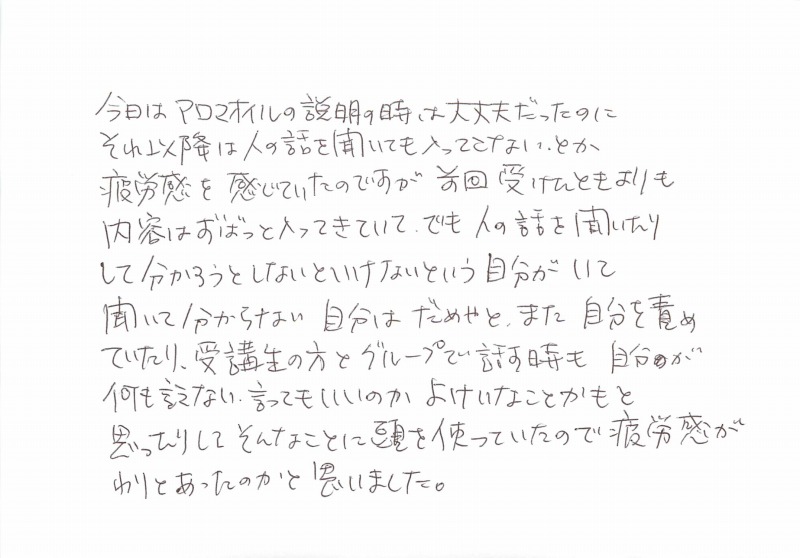 今日は アロマオイルの説明の時は大丈夫だったのに
それ以降は人の話を聞いても入ってこない、とか
疲労感を感じていたのですが 前回受けたときよりも
内容はずばっと入ってきていて、でも 人の話を聞いたり
して分かろうとしないといけないという 自分が いて
聞いて分からない 自分は だめやと、また 自分を責め
ていたり、受講生の方とグループで話す時も 自分が
何も言えない、言ってもいいのか よけいなことかもと
思ったりして そんなことに頭を使っていたので疲労感が
わりとあったのかと思いました。